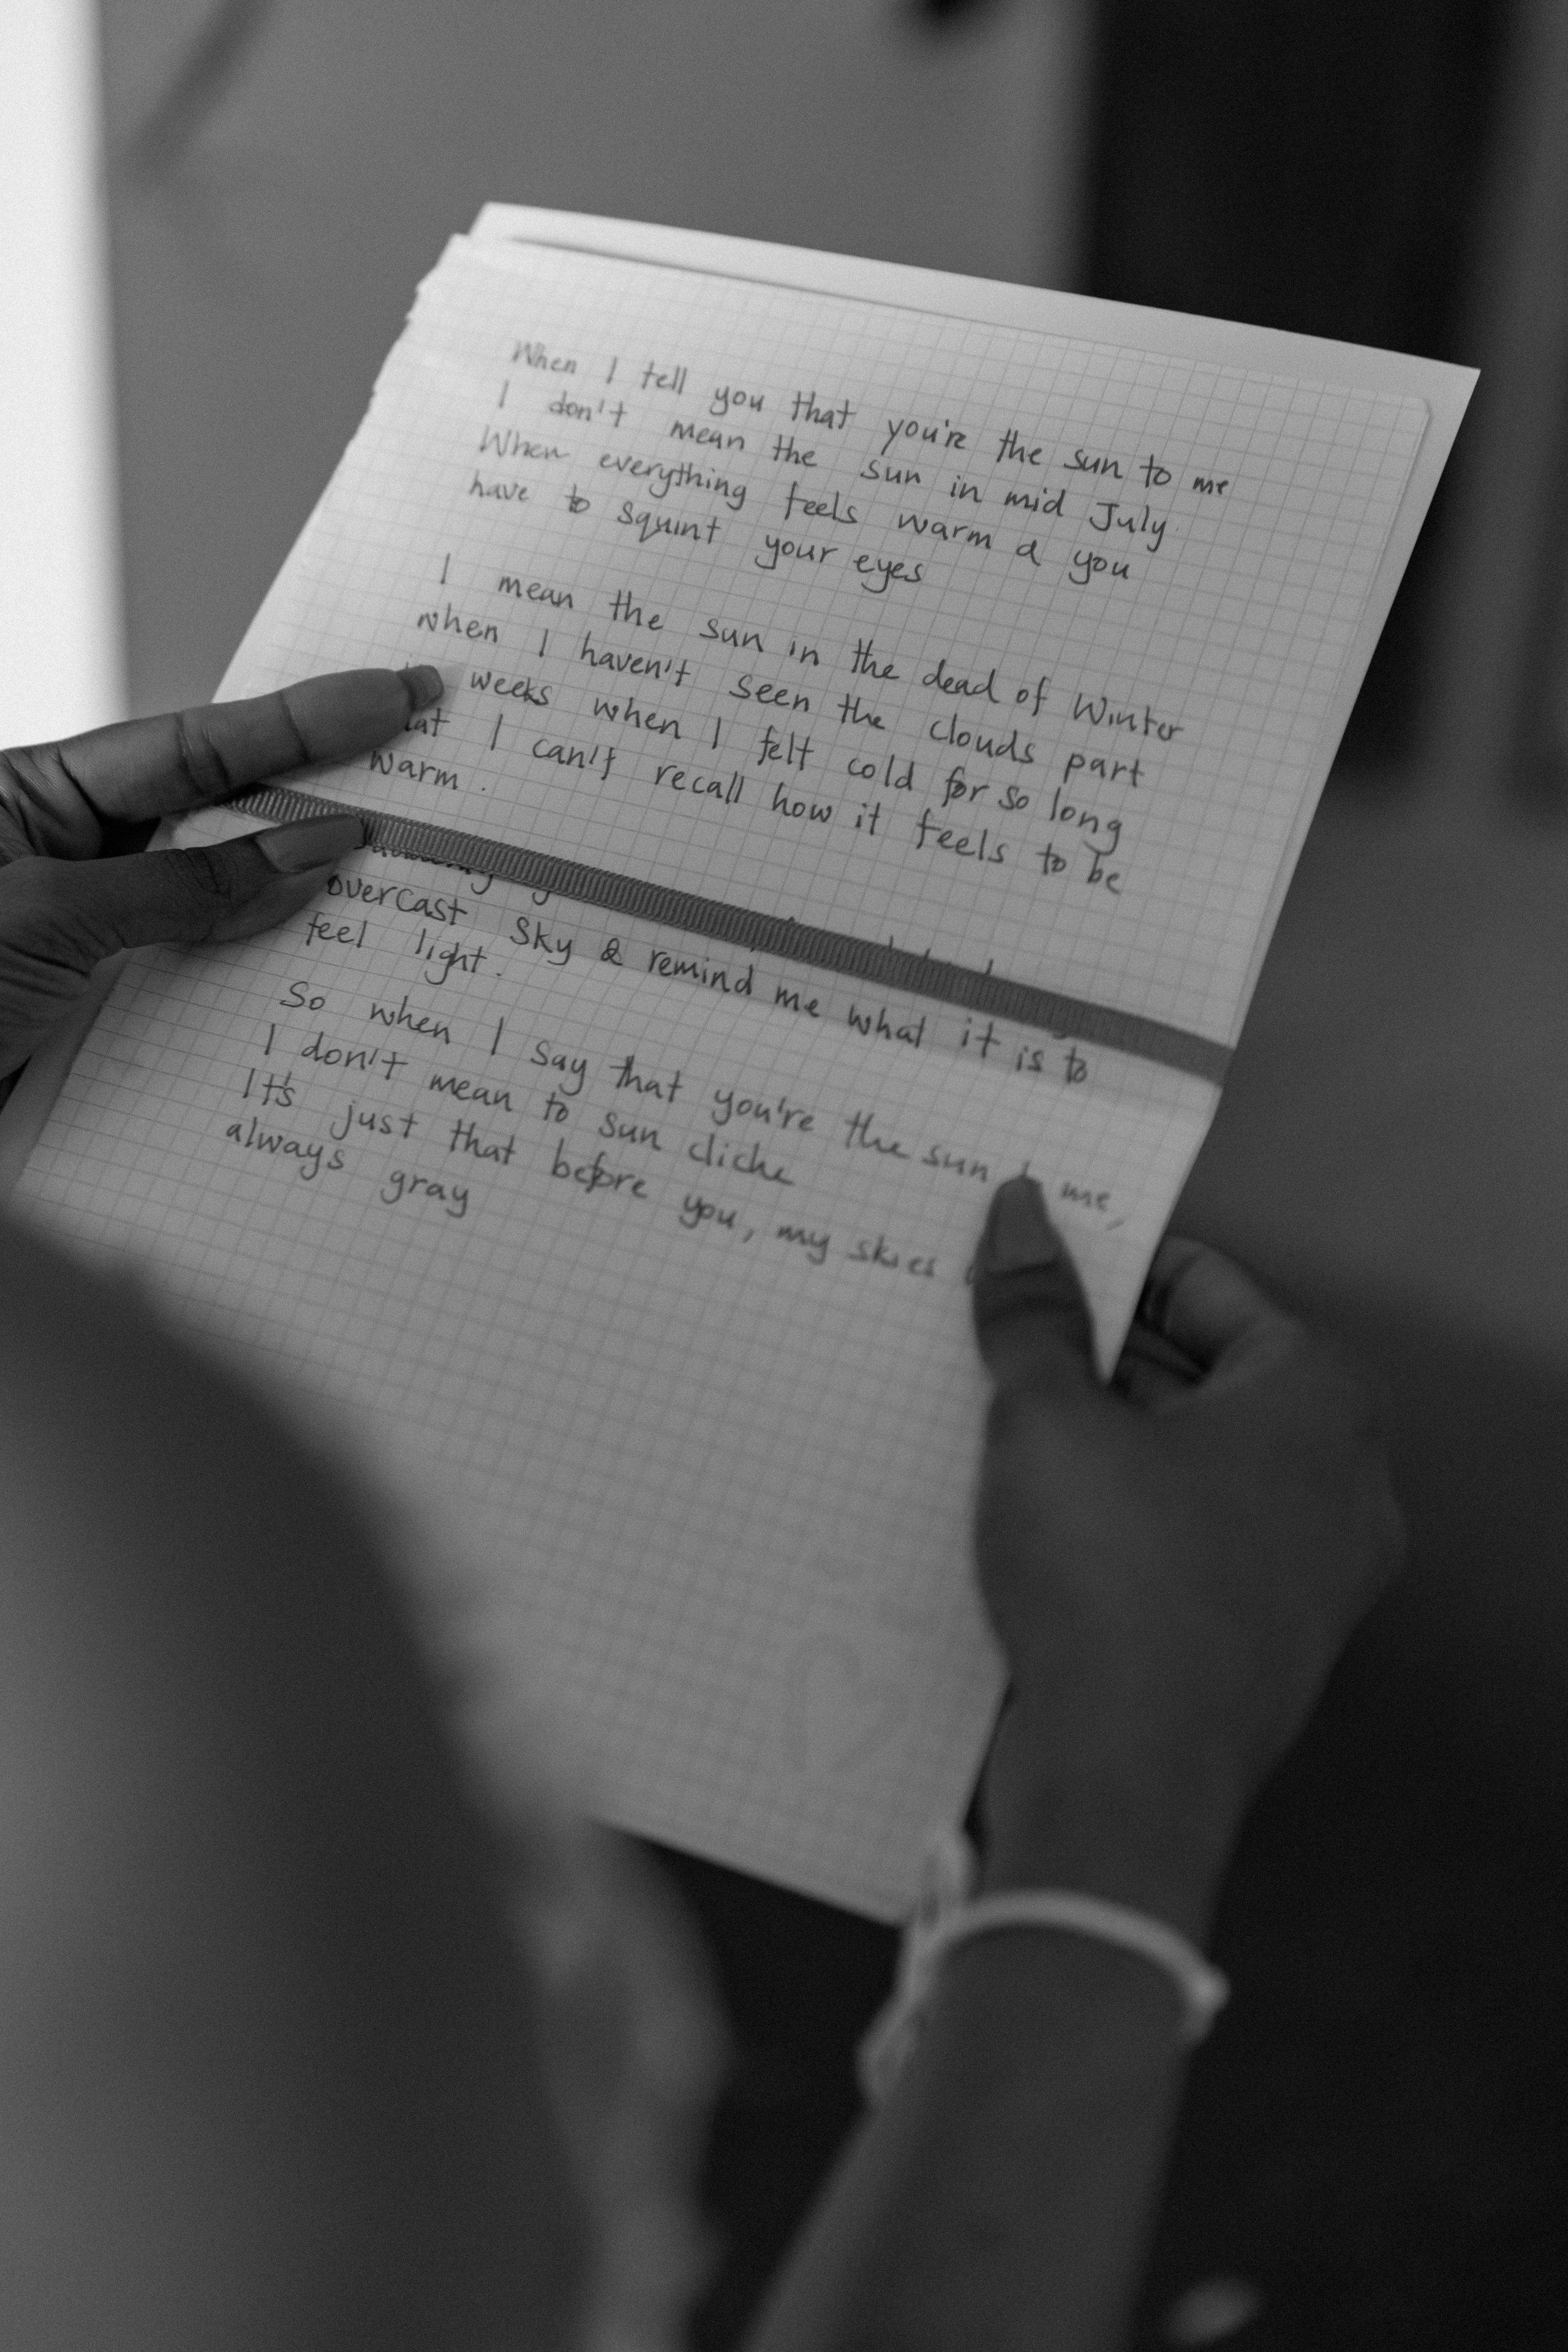 When I tell you that you're the sun to me
I don't mean the sun in mid July
When everything feels warm & you
have to squint your eyes
I mean the sun in the dead of Winter
when I haven't seen the clouds part
weeks when I felt cold for so long
I can't recall how it feels to be
warm.
overcast sky & remind me what it is to
feel light.
So when I say that you're the sun me,
I don't mean to sun cliche
It's just that before you, my skies
always gray